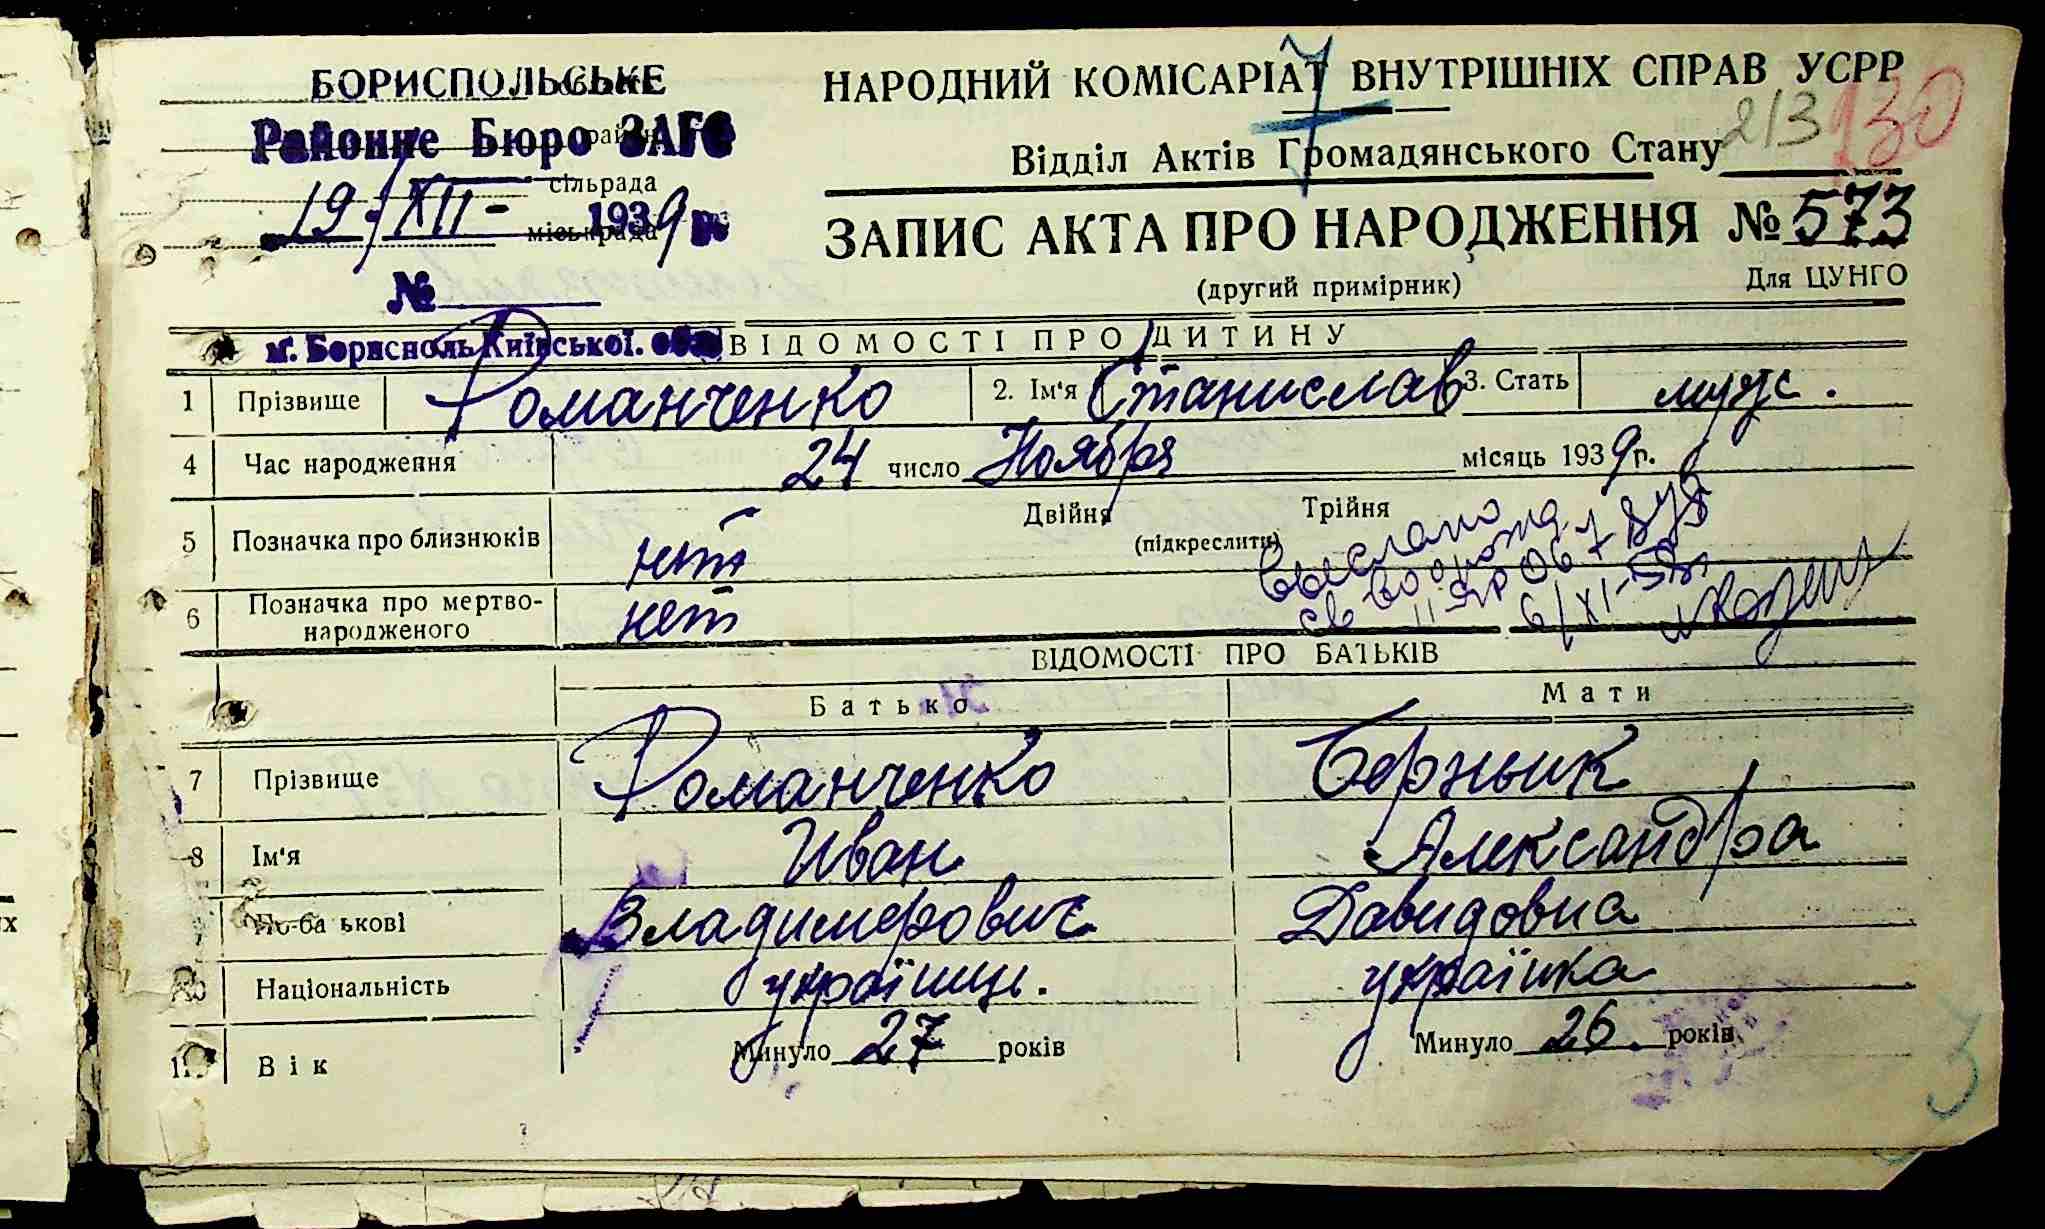 БОРИСПОЛЬСЬКЕ
Районне Бюро ЗАГС
сільрада
19/XII - 1939 р
міськрада
№
м. Бориспіль Київської. обл.
НАРОДНИЙ КОМІСАРІАТ ВНУТРІШНІХ СПРАВ УСРР
7
213 130
Відділ Актів Громадянського Стану
ЗАПИС АКТА ПРО НАРОДЖЕННЯ № 573
(другий примірник) Для ЦУНГО
ВІДОМОСТІ ПРО ДИТИНУ
1 Прізвище Романченко 2. Ім'я Станислав 3. Стать муж.
4 Час народження 24 число Ноября місяць 1939 р.
5 Позначка про близнюків нет Двійня Трійня
(підкреслити)
6 Позначка про мертво-
народженого нет
выслано
св
6/XI-55г
ВІДОМОСТІ ПРО БАТЬКІВ
Батько Мати
7 Прізвище Романченко
8 Ім'я Иван Александра
По-ба ькові Владимерович Давидовна
10 Національність українць. українка
11 Вік Минуло 27 років Минуло 26 років
3